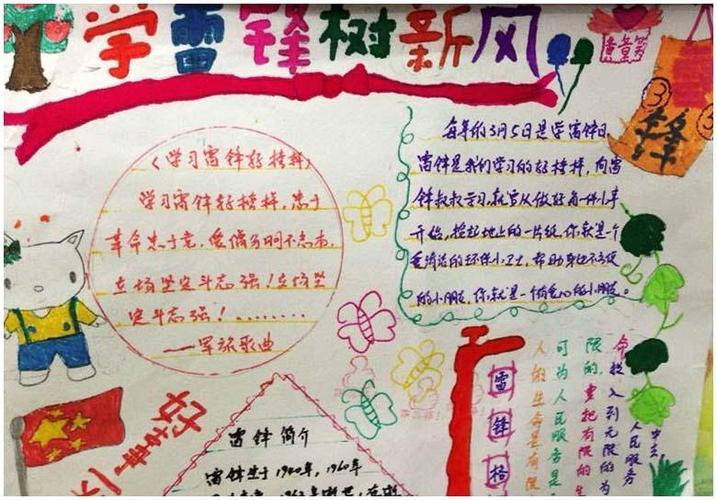 学雷锋树新风
《学习雷锋好榜样》
学习雷锋好榜样，忠于
革命忠于党，爱憎分明不忘本，
立场坚定斗志强！立场坚
定斗志强！........
——军旅歌曲
每年的3月5日是学雷锋日，
雷锋是我们学习的好榜样，向雷
锋叔叔学习，就官从做好每一件小事
开始，捡起地上的一片纸，你就是个
爱清洁的环保小卫士，帮助身边不方便
的小朋友，你就是一个有爱心的小朋友。
好故事
雷锋简介
雷锋生于1940年，1960年
雷锋
命投入到无限的为
人民服务
限的，重把有限的生
可为人民服务是
人的生命是有限